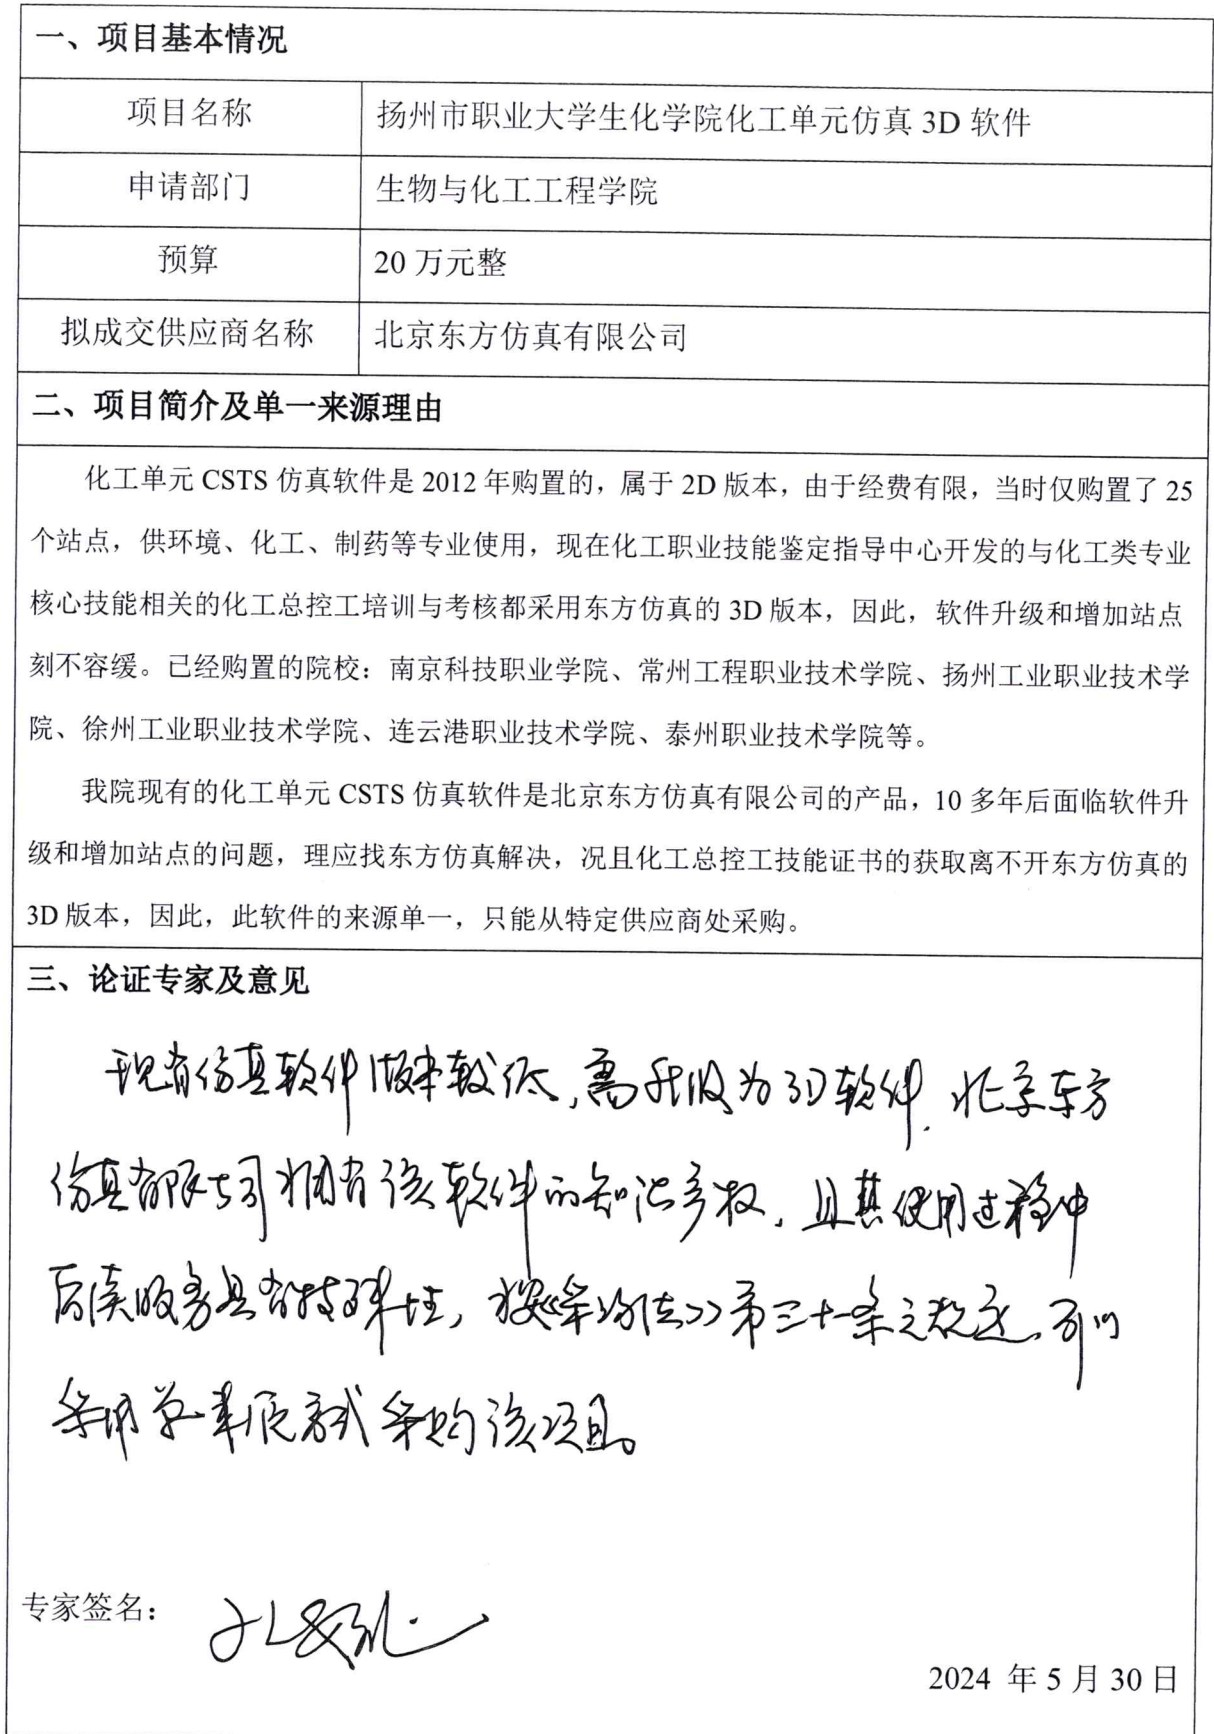 一、项目基本情况
项目名称 扬州市职业大学生化学院化工单元仿真 3D 软件
申请部门 生物与化工工程学院
预算 20 万元整
拟成交供应商名称 北京东方仿真有限公司
二、项目简介及单一来源理由
化工单元 CSTS 仿真软件是 2012 年购置的，属于 2D 版本，由于经费有限，当时仅购置了 25
个站点，供环境、化工、制药等专业使用，现在化工职业技能鉴定指导中心开发的与化工类专业
核心技能相关的化工总控工培训与考核都采用东方仿真的 3D 版本，因此，软件升级和增加站点
刻不容缓。已经购置的院校：南京科技职业学院、常州工程职业技术学院、扬州工业职业技术学
院、徐州工业职业技术学院、连云港职业技术学院、泰州职业技术学院等。
我院现有的化工单元 CSTS 仿真软件是北京东方仿真有限公司的产品，10 多年后面临软件升
级和增加站点的问题，理应找东方仿真解决，况且化工总控工技能证书的获取离不开东方仿真的
3D 版本，因此，此软件的来源单一，只能从特定供应商处采购。
三、论证专家及意见
现有仿真软件版本较低，需升级为3D软件．北京东方
仿真有限公司拥有该软件的知识产权，且其使用过程中
后续服务具有特殊性，按《采购法》第三十一条之规定，可以
采用单一来源方式采购该项目。
专家签名：
2024 年 5 月 30 日